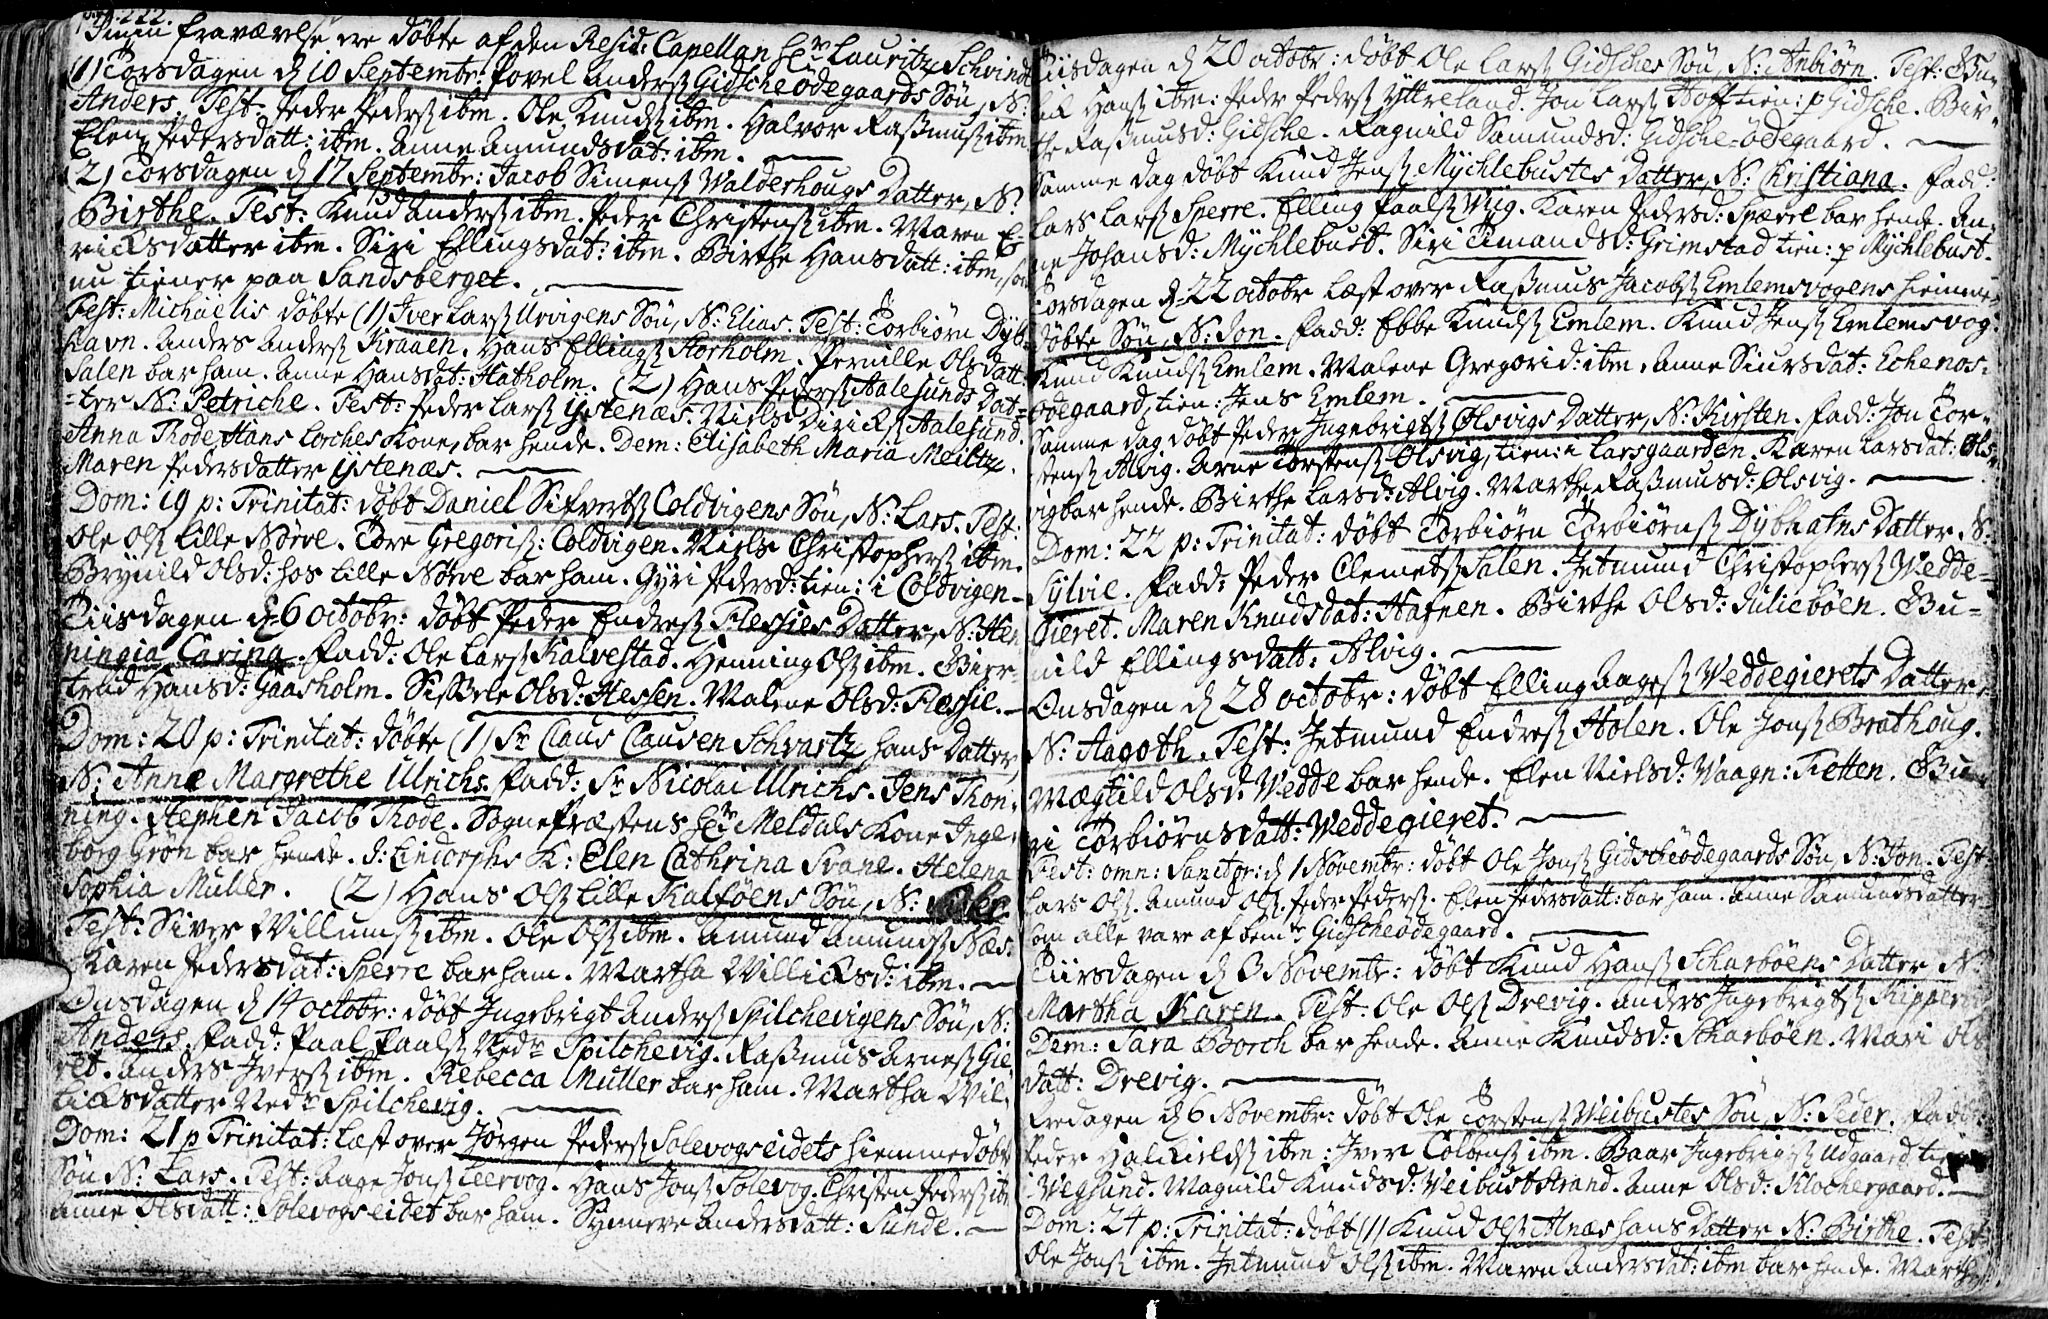 I min fraværelse ere døbte af den Resid: Capellan Hr Lauritz Schvindt
(1) Torsdagen d 10 Septembr: Povel Anderss Gidscheødegaards Søn, N:
Anders. Test. Peder Pederss ibm. Ole Knudss ibm. Halvor Rasmuss ibm
Elen Pedersdatt: ibm. Anne Amundsdat: ibm.
(2) Torsdagen d 17 Septembr: Jacob Simenss Walderhougs Datter, N:
Birthe. Test: Knud Anderss ibm. Peder Christenss ibm. Maren E-
ricksdatter ibm. Siri Ellingsdat: ibm. Birthe Hansdatt: ibm, som
nu tiener paa Sandsberget.
Fest: Michaëlis døbte (1) Iver Larss Urvigens Søn, N: Elias. Test: Torbiørn Dyb-
havn. Anders Anderss Kraaen. Hans Ellingss Storholm. Pernille Olsdatt:
Salen bar ham. Anne Hansdat: Hatholm. (2) Hans Pederss Aalesunds Dat-
-ter N: Petriche. Test: Peder Larss Ystenæs. Niels Dirickss Aalesund.
Anna Thode, Hans Lorches Kone, bar hende. Dem: Elisabeth Maria Meiltze.
Maren Pedersdatter Ystenæs.
Dom: 19 p: Trinitat: døbt Daniel Sifvertss Coldvigens Søn, N: Lars. Test:
Ole Olss Lille Nørve. Tore Gregoriss: Coldvigen. Niels Christopherss ibm.
Brynild Olsd: hos Lille Nørve bar ham. Gyri Pedersd: tien: i Coldvigen-
Tiisdagen d 6 octobr: døbt Peder Endress Flessies Datter, N: Hen
ningia Carina. Fadd: Ole Larss Kalvestad. Henning Olss ibm. Bier-
trud Hansd: Gaasholm. Sissele Olsd: Hessen. Malene Olsd: Flessie.
Dom: 20 p: Trinitat: døbte (1) Sr Claus Clausen Schvartz, hans Datter,
N: Anne Margrethe Ulrichs. Fadd: Sr Nicolai Ulrichs. Jens Thon-
ning. Stephen Jacob Thode. Sognepræstens Hr Meldals Kone Inge-
borg Grøn bar hende. S: Lindorphs K: Elen Cathrina Svane. Helena
Sophia Muller. (2) Hans Olss Lille Kalføens Søn, N:
Test: Siver Willumss ibm. Ole Olss ibm. Amund Amundss Næs.
Karen Pedersdat: Sperre bar ham. Martha Willicksd: ibm.
Onsdagen d 14 octobr: døbt Ingebrigt Anderss Spilchevigens Søn, N:
Anders. Fadd: Paal Paalss Nedr Spilchevig. Rasmus Arness Gie
ret. Anders Iverss ibm. Rebecca Muller bar ham. Martha Wil-
licksdatter Nedr Spilchevig.
Dom: 21 p Trinitat: Læst over Jørgen Pederss Solevogseidets hiemmedøbte
Søn N: Lars. Test: Aage Jonss Leervog. Hans Jonss Solevog. Christen Pederss ibm
Anne Olsdatt: Solevogseidet bar ham. Synneve Andersdatt: Sunde.
Tiisdagen d 20 octobr: døbt Ole Larss Gidsches Søn, N: Anbiørn. Test:
Hanss ibm: Peder Pederss Yttreland. Jon Larss Hoff tien: p Gidsche. Bir-
the Rasmusd: Gidsche. Ragnild Samundsd: Gidsche-ødegaard.
Samme dag døbt Knud Jenss Mychlebustes Datter, N: Christiana. Fadd:
Lars Larss Sperre. Elling Paalss Wiig. Karen Pedersd: Spærre bar hende. An-
ne Johansd: Mychlebust. Siri Timandsd: Grimstad tien: p Mychlebust.
Torsdagen d 22 octobr læst over Rasmus Jacobss Emlemsvogens hiemme-
døbte Søn, N: Jon. Fadd: Ebbe Knudss Emlem. Knud Jenss Emlemsvog.
Knud Knudss Emlem. Malene Gregorid: ibm. Anne Siursdat: Echenos-
ødegaard, tien: Jens Emlem.
Samme dag døbt Peder Ingebrigtss Ølsvigs Datter, N: Kirsten. Fadd: Jon Tor-
stenss Alvig. Arne Torstenss Ølsvig, tien: i Larsgaarden. Karen Larsdat: Øls-
vig bar hende. Birthe Larsd: Alvig. Marthe Rasmusd: Ølsvig.
Dom: 22 p: Trinitat: døbt Torbiørn Torbiørnss Dybhafns Datter N:
Sylvie. Fadd: Peder Clemetss Salen. Jetmund Christopherss Wedde-
gieret. Maren Knudsdat: Hafnen. Birthe Olsd: Juliebøen. Gu-
nild Ellingsdatt: Alvig.
Onsdagen d 28 octobr: døbt Elling Aagess Veddegierets Datter,
N: Aagoth. Test: Jetmund Endress Holen. Ole Jonss Brathoug.
Magtild Olsd: Vedde bar hende. Elen Nielsd: Vaagn: Fletten. Gu
ri Torbiørnsdatt: Veddegieret.
Fest: omn: Sanctor: d 1 Novembr: døbt Ole Jonss Gidscheødegaards Søn, N: Jon. Test:
Lars Olss. Amund Olss. Peder Pederss. Elen Pedersdatt: bar ham. Anne Samundsdatter
som alle vare af bemte Gidscheødegaard.
Tiirsdagen d 3 Novembr: døbt Knud Hanss Scharbøens Datter N:
Martha Karen. Test: Ole Olss Drevig. Anders Ingebregtss Kipper
Dem: Sara Borch bar hende. Anne Knudsd: Skarbøen. Mari Ols
datt: Drevig.
Fredagen d 6 Novembr: døbt Ole Torstenss Veibustes Søn, N: Peder. Fadd:
Peder Haldkieldss ibm: Iver Colbenss ibm. Baar Ingebrigtss Udgaard
Vegsund. Magnild Knudsd: Veibuststrand. Anne Olsd: Klochergaard.
Dom: 24 p: Trinitat: døbt (1) Knud Olss Alnæs hans Datter N: Birthe. Test:
Ole Jonss ibm. Jetmund Olss ibm. Maren Andersdat: ibm bar hende. Marthe